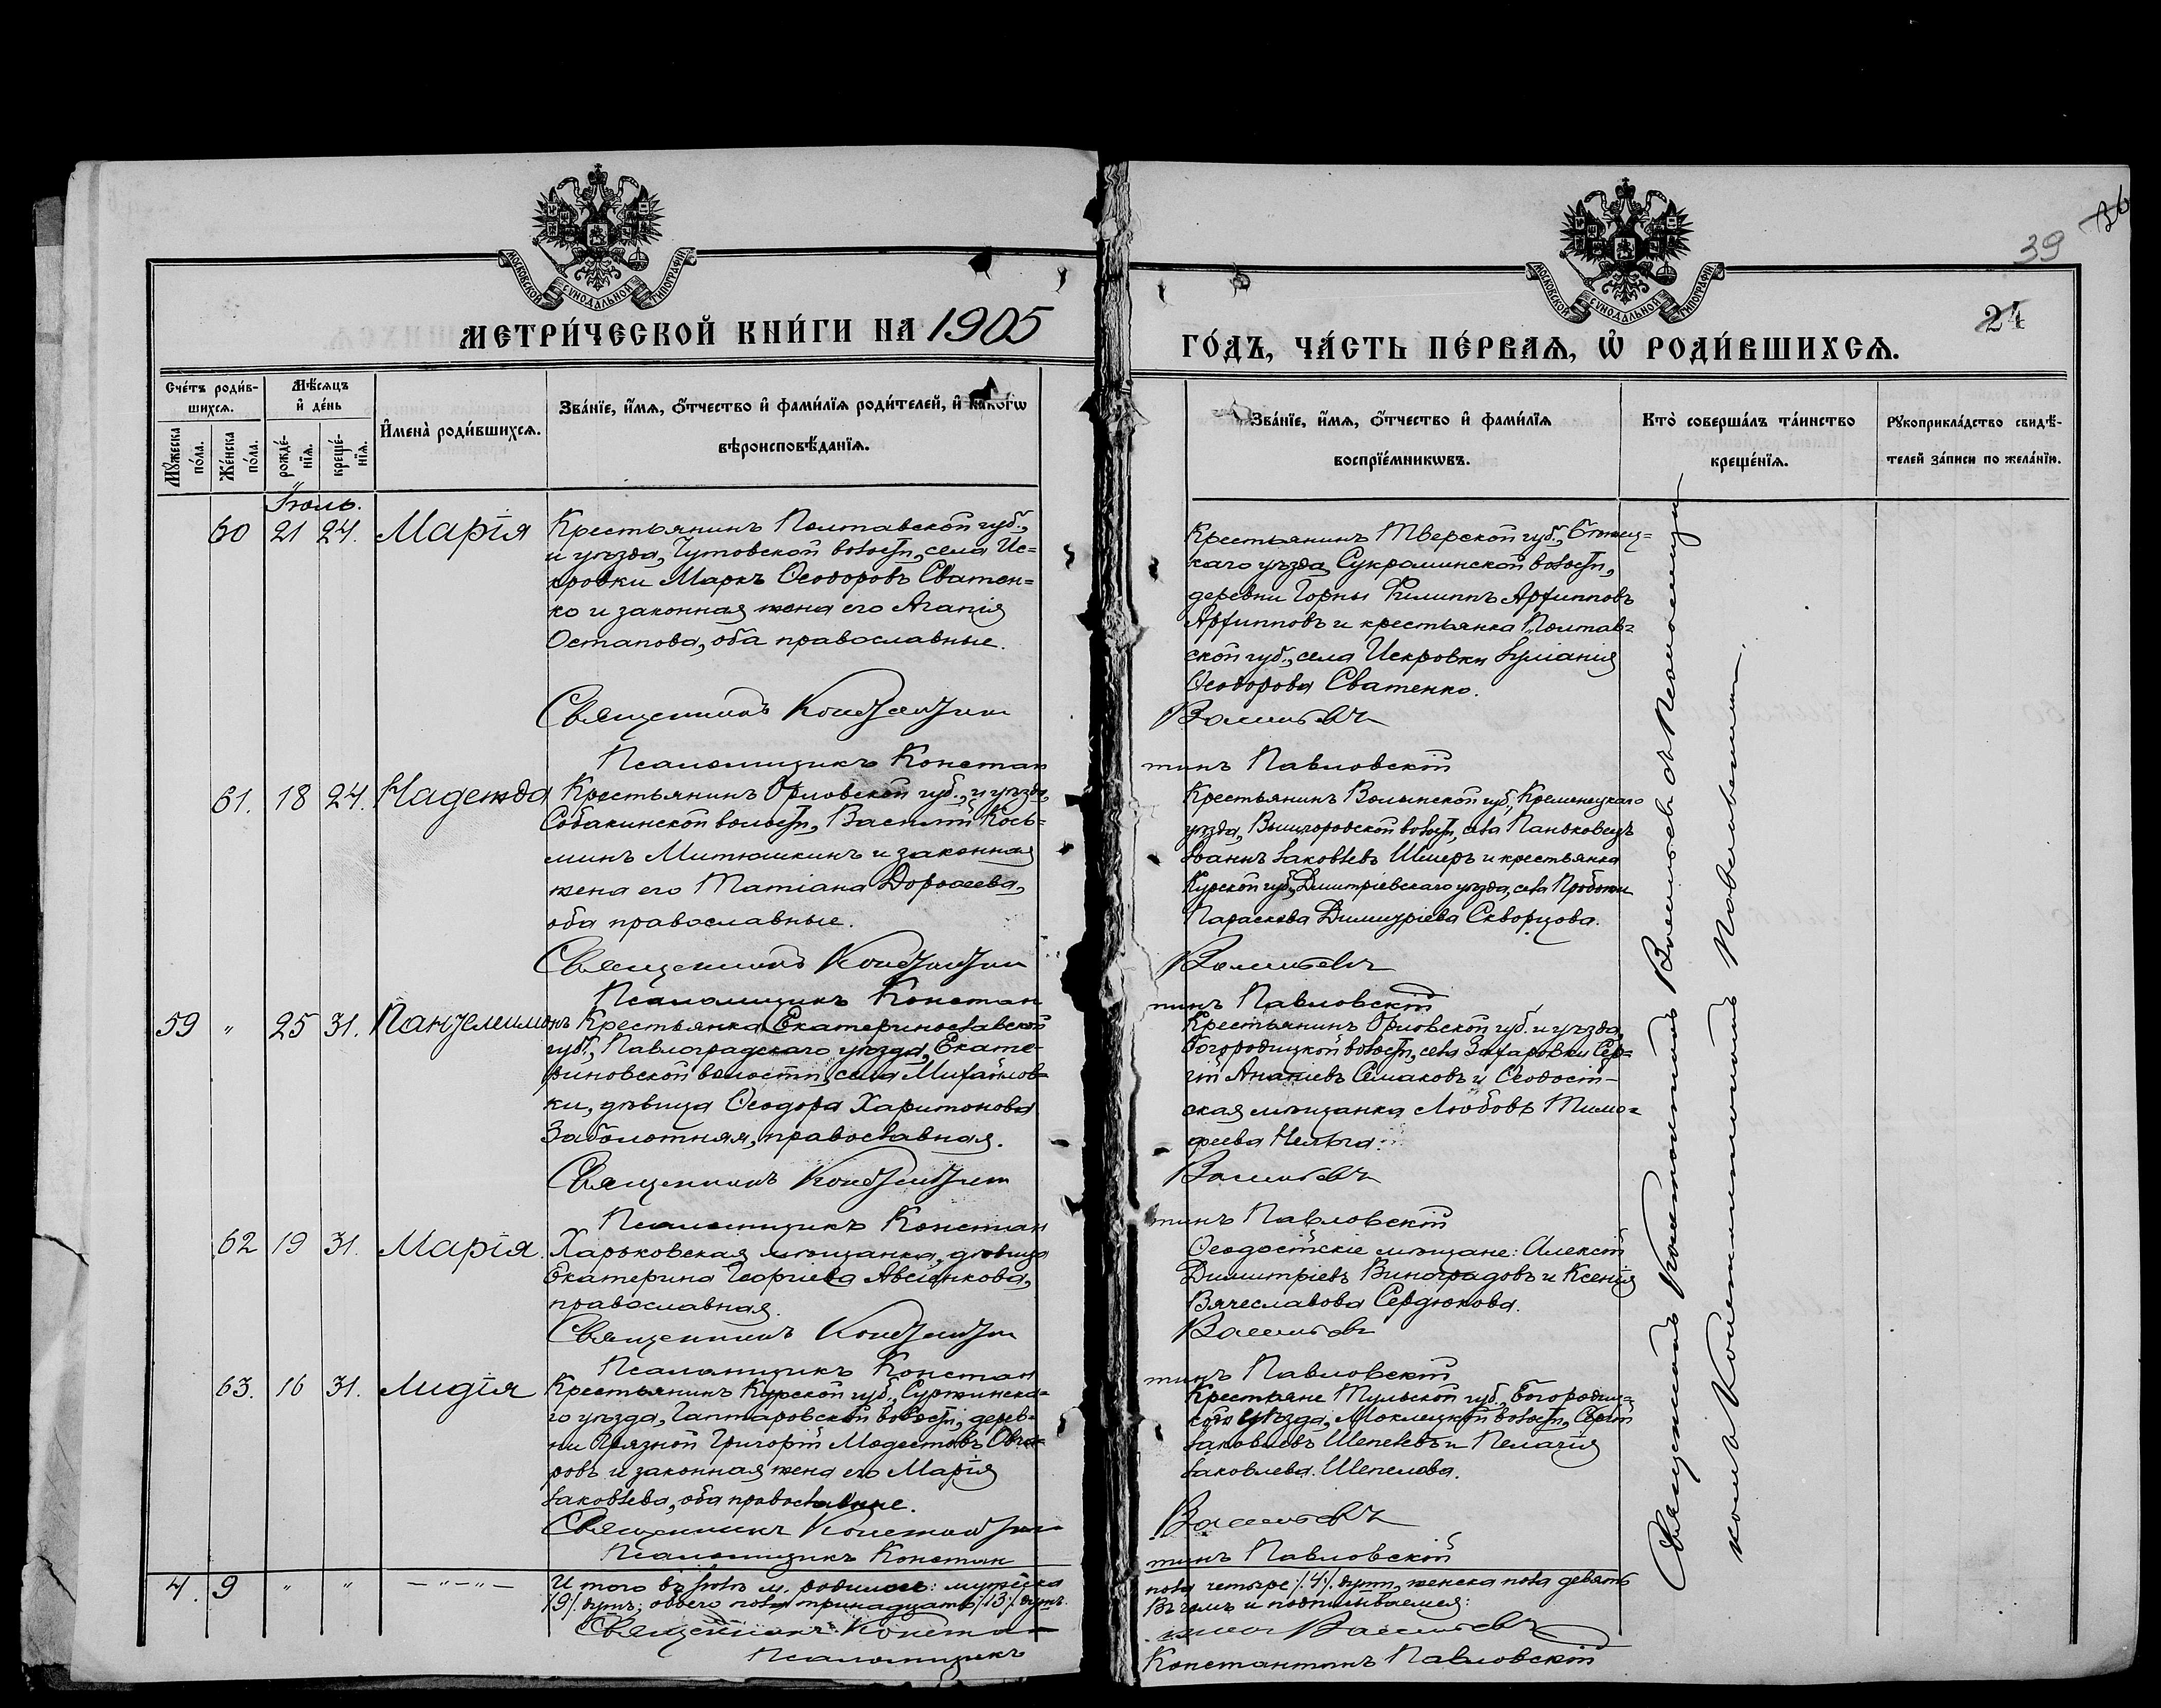 36
39
24
МОСКОВСКОЙ СѴНОДАЛЬНОЙ ТИПОГРАФІИ
МОСКОВСКОЙ СѴНОДАЛЬНОЙ ТИПОГРАФІИ
МЕТРИ́ЧЕСКОЙ КНИ́ГИ НА 1905
ГО́ДЪ, ЧА́СТЬ ПЕ́РВАѦ, Ѡ҆ РОДИ́ВШИХСѦ.
Сче́тъ роди́в-
шихсѧ.
Мꙋ́жеска по́ла.
Же́нска по́ла.
Мѣ́сѧцъ
и҆ де́нь
рожде́-
нїѧ.
креще́-
нїѧ.
И҆мена̀ роди́вшихсѧ.
Зва́нїе, и҆́мѧ, ѻ҆́тчество и҆ фами́лїѧ роди́телей, и҆ како́гѡ
вѣроисповѣ́данїѧ.
Зва́нїе, и҆́мѧ, ѻ҆́тчество и҆ фами́лїѧ
воспрїе́мникѡвъ.
Кто̀ соверша́лъ та́инство
креще́нїѧ.
Рꙋкоприкла́дство свидѣ́-
телей за́писи по жела́нїю.
Іюль.
60 21 24. Марія
Крестьянинъ Полтавской губ.,
и уѣзда, Чутовской волости, села Ис-
кровки Маркъ Ѳеодоровъ Сватен-
ко и законная жена его Агапія
Остапова, оба православные.
Священникъ Константин
Псаломщикъ Констан
Крестьянинъ Тверской губ.,
каго уѣзда, Сукроминской волости,
деревни Горны Филиппъ Архипповъ
Архипповъ и крестьянка Полтав-
ской губ., села Искровки Іуліанія
Ѳеодорова Сватенко.
Васильевъ
тинъ Павловскій
61. 18 24. Надежда
Крестьянинъ Орловской губ., и уѣзда,
Собакинской волости, Василій Козь-
минъ Митюшкинъ и законная
жена его Татіана Дороѳеева,
оба православные.
Священникъ Константин
Псаломщикъ Констан
Крестьянинъ Волынской губ., Кременецкаго
уѣзда, Вышгородской волости, села Паньковецъ
Іоаннъ Іаковлевъ и крестьянка
Курской губ., Дмитріевскаго уѣзда, села
Параскева Димитріева Скворцова.
Васильевъ
тинъ Павловскій
59 " 25 31. Пантелеимонъ
Крестьянка Екатеринославской
губ., Павлоградскаго уѣзда, Екате-
риновской волости, села Михайлов-
ки, дѣвица Ѳеодора Харитонова
Заболотняя, православная.
Священникъ Константин
Псаломщикъ Констан
Крестьянинъ Орловской губ. и уѣзда,
Богородицкой волости, села Захаровки Сер-
гій Ананіевъ Семаковъ и Ѳеодосій-
ская мѣщанка Любовь Тимо-
феева
Васильевъ
тинъ Павловскій
62 19 31. Марія.
Харьковская мѣщанка, дѣвица
Екатерина Георгіева Авсѣнкова,
православная.
Священникъ Константин
Псаломщикъ Констан
Ѳеодосійскіе мѣщане: Алексій
Димитріевъ Виноградовъ и Ксенія
Вячеславова Сердюкова.
Васильевъ
тинъ Павловскій
63. 16 31. Лидія
Крестьянинъ Курской губ.,
го уѣзда, волости, дерев-
ни Грязной Григорій Модестовъ Овча-
ровъ и законная жена его Марія
Іаковлева, оба православные.
Священникъ Константин
Псаломщикъ Констан
Крестьяне Тульской губ., Богородиц-
каго уѣзда, волости, Сергій
Іаковлевъ Шепелевъ и Пелагія
Іаковлева Шепелова.
Васильевъ
тинъ Павловскій
4. 9 " " — " — " —
Итого въ іюлѣ м. родилось: мужеска
пола четыре /.4/. души, женска пола девять
/9/. душъ; обоего пола тринадцать /13/. душъ.
Въ чемъ и подписываемся:
Священникъ Конста
Васильевъ
Псаломщикъ
Константинъ Павловскій
Священникъ Константинъ Васильевъ съ Псаломщи-
комъ Константиномъ Павловскимъ.